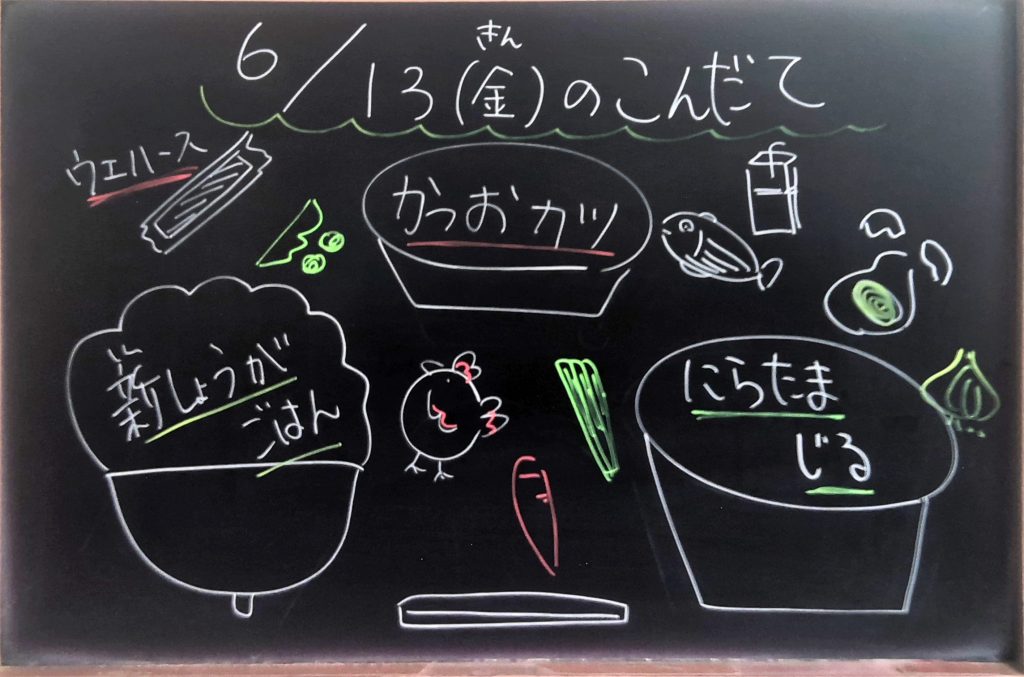 きん
6/13(金)のこんだて
ウエハース
かつおカツ
新しょうが
ごはん
にらたま
じる